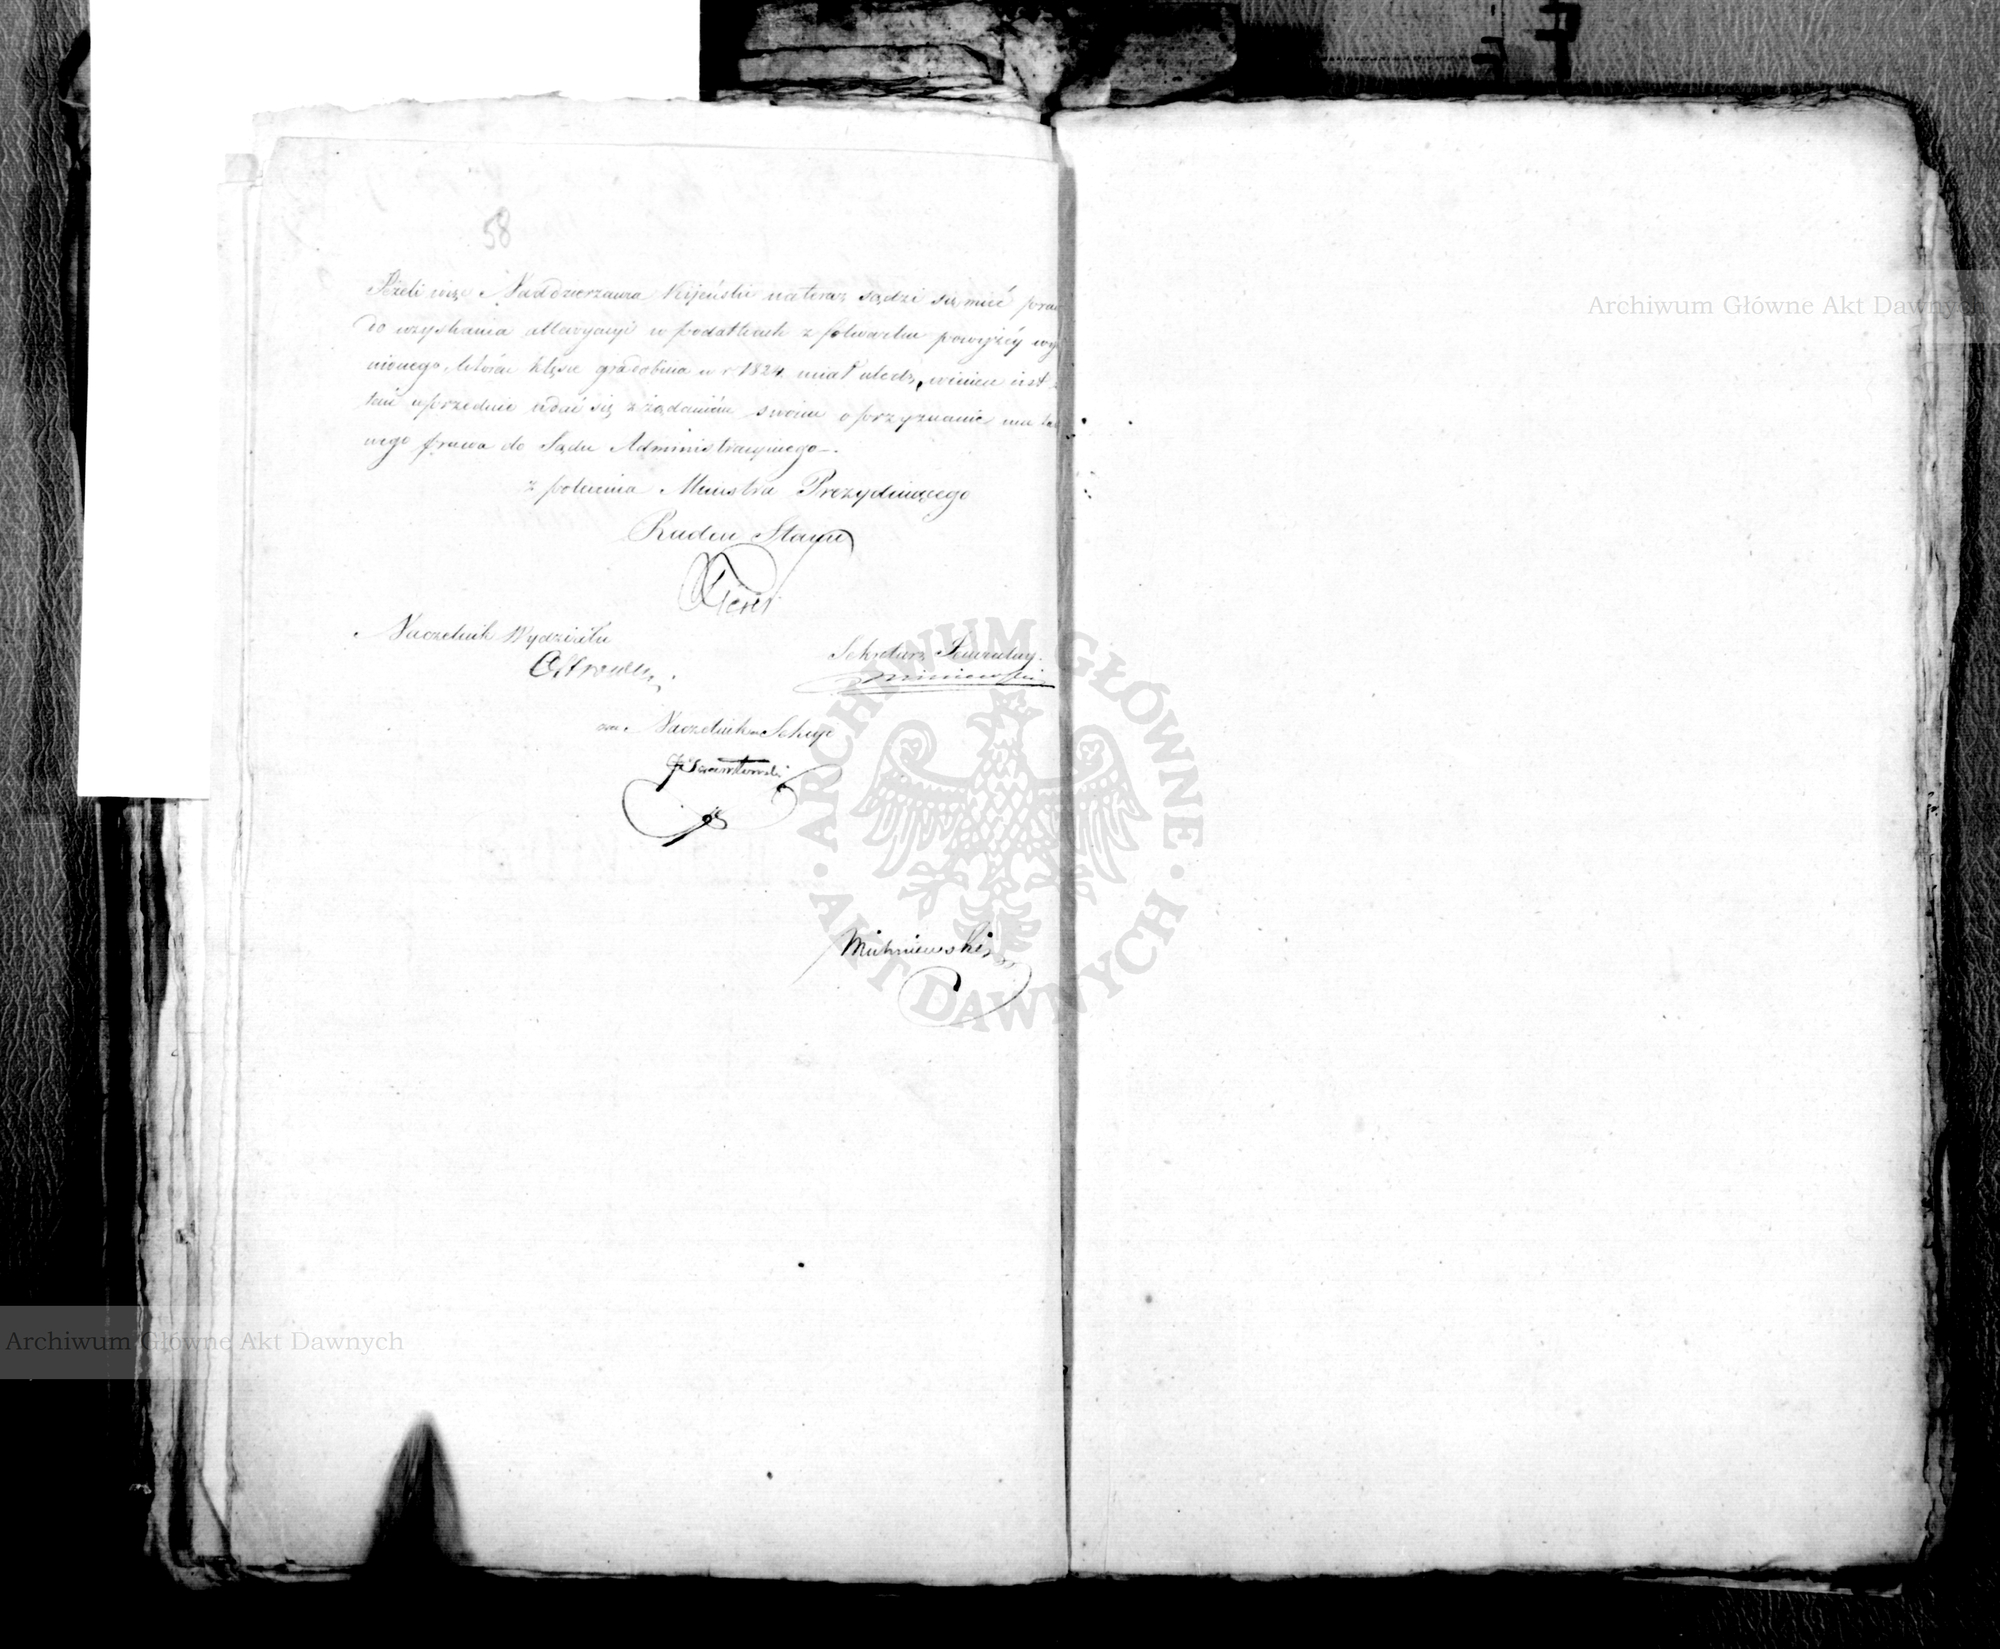 58
Jeżeli więc Naddzierzawca nateraz sądzi się mieć pra
do uzyskania allewyacyi w podatkach z folwarku powyżéy wy
nionego, któren klęsce gradobicia w r 1824 miał uledz, winien
uprzednio udać się z żądaniem swoim o przyznanie mu
wego prawa do Sądu Administracyinego.
z polecenia Ministra Prezyduiącego
Radca Stanu
Naczelnik Wydziału
Sekretarz Jeneralny.
Naczelnik Sekcyi
Michniewski
Archiwum Główne Akt Dawnych
Archiwum Główne Akt Dawnych
ARCHIWUM GŁÓWNE · AKT DAWNYCH ·